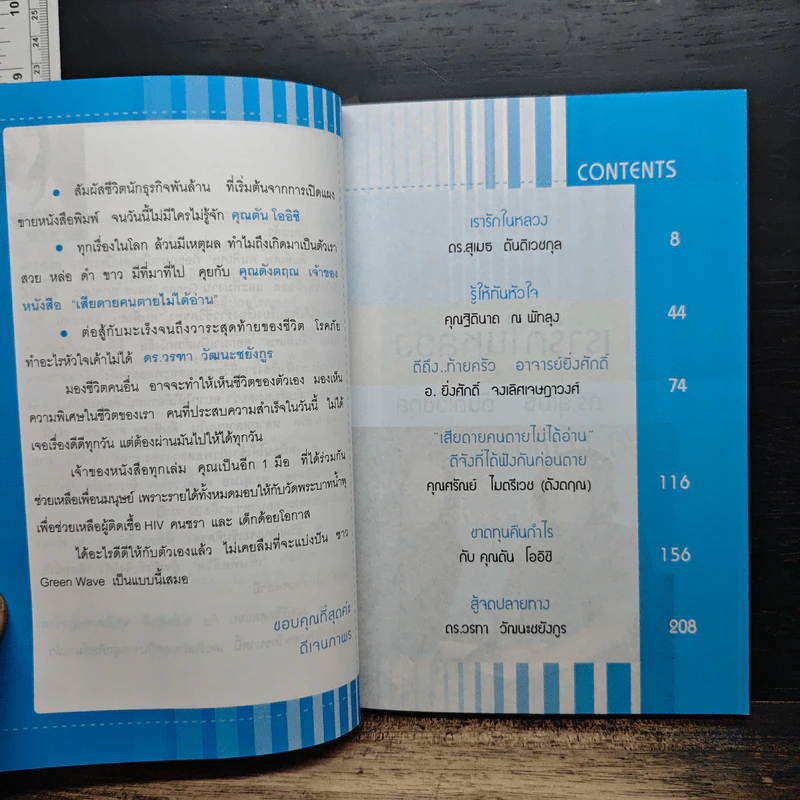 10
9
25
24
23
• สัมผัสชีวิตนักธุรกิจพันล้าน ที่เริ่มต้นจากการเปิดแผง
ขายหนังสือพิมพ์ จนวันนี้ไม่มีใครไม่รู้จัก คุณตัน โออิชิ
• ทุกเรื่องในโลก ล้วนมีเหตุผล ทำไมถึงเกิดมาเป็นตัวเรา
สวย หล่อ ดำ ขาว มีที่มาที่ไป คุยกับ คุณดังตฤณ เจ้าของ
หนังสือ "เสียดายคนตายไม่ได้อ่าน"
• ต่อสู้กับมะเร็งจนถึงวาระสุดท้ายของชีวิต โรคภัย
ทำอะไรหัวใจเค้าไม่ได้ ดร.วรฑา วัฒนะชยังกูร
มองชีวิตคนอื่น อาจจะทำให้เห็นชีวิตของตัวเอง มองเห็น
ความพิเศษในชีวิตของเรา คนที่ประสบความสำเร็จในวันนี้ ไม่ได้
เจอเรื่องดีดีทุกวัน แต่ต้องผ่านมันไปให้ได้ทุกวัน
เจ้าของหนังสือทุกเล่ม คุณเป็นอีก 1 มือ ที่ได้ร่วมกัน
ช่วยเหลือเพื่อนมนุษย์ เพราะรายได้ทั้งหมดมอบให้กับวัดพระบาทน้ำพุ
เพื่อช่วยเหลือผู้ติดเชื้อ HIV คนชรา และ เด็กด้อยโอกาส
ได้อะไรดีดีให้กับตัวเองแล้ว ไม่เคยลืมที่จะแบ่งปัน ชาว
Green Wave เป็นแบบนี้เสมอ
ขอบคุณที่สุดค่ะ
ดีเจนภาพร
CONTENTS
เรารักในหลวง
ดร.สุเมธ ตันติเวชกุล 8
รู้ให้ทันหัวใจ
คุณฐิตินาถ ณ พัทลุง 44
ดีถึง..ท้ายครัว อาจารย์ยิ่งศักดิ์
อ. ยิ่งศักดิ์ จงเลิศเจษฎาวงศ์ 74
"เสียดายคนตายไม่ได้อ่าน"
ดีจังที่ได้ฟังกันก่อนตาย
คุณศรันย์ ไมตรีเวช (ดังตฤณ) 116
ขาดทุนคืนกำไร
กับ คุณตัน โออิชิ 156
สู้จดปลายทาง
ดร.วรฑา วัฒนะชยังกูร 208